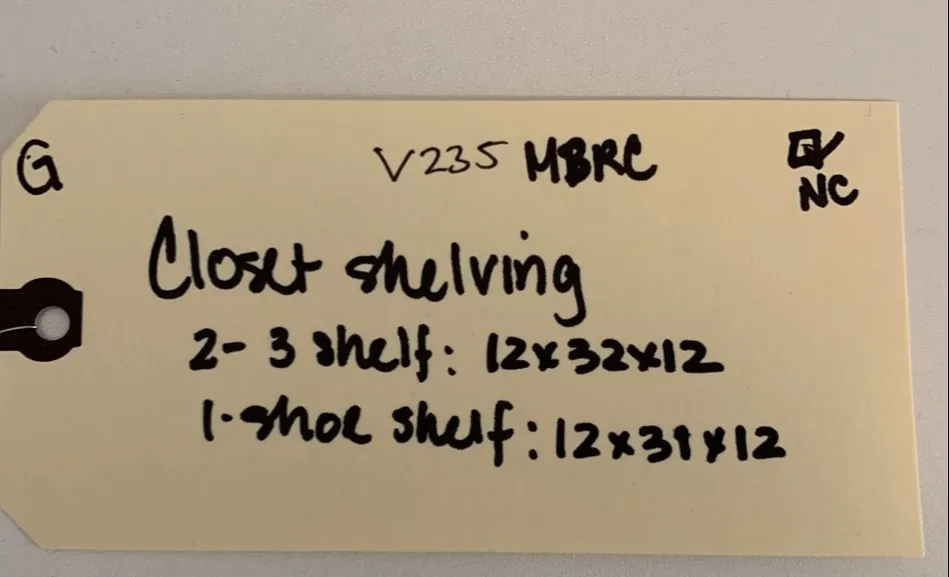 G
V235 MBRC
NC
Closet shelving
2- 3 shelf: 12x32x12
1-shoe shelf: 12x31x12